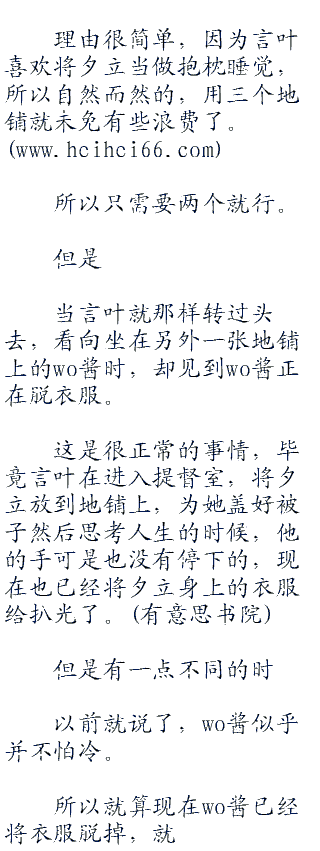 理由很简单，因为言叶
喜欢将夕立当做抱枕睡觉，
所以自然而然的，用三个地
铺就未免有些浪费了。
(www.hcihci66.com)
所以只需要两个就行。
但是
当言叶就那样转过头
去，看向坐在另外一张地铺
上的wo酱时，却见到wo酱正
在脱衣服。
这是很正常的事情，毕
竟言叶在进入提督室，将夕
立放到地铺上，为她盖好被
子然后思考人生的时候，他
的手可是也没有停下的，现
在也已经将夕立身上的衣服
给扒光了。(有意思书院)
但是有一点不同的时
以前就说了，wo酱似乎
并不怕冷。
所以就算现在wo酱已经
将衣服脱掉，就